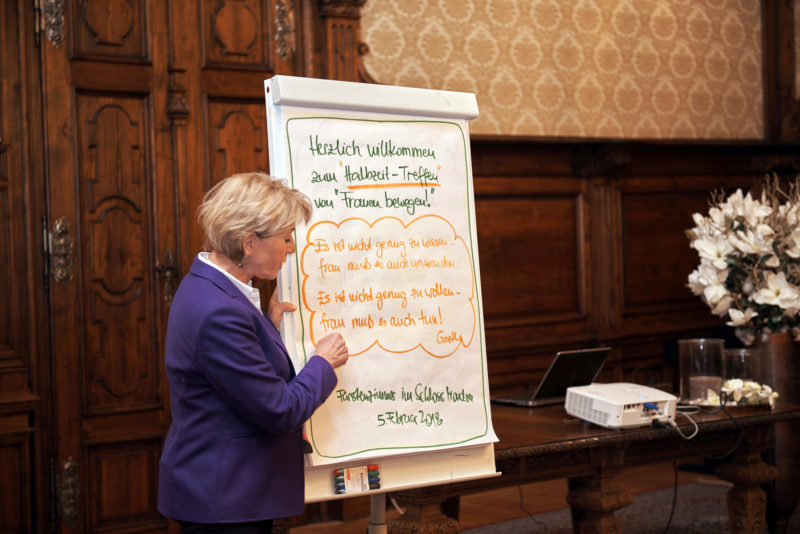 Herzlich willkommen
zum "Halbzeit-Treffen"
von "Frauen bewegen!"
Es ist nicht genug zu wissen-
frau muß es auch anwenden.
Es ist nicht genug zu wollen-
frau muß es auch tun!
Goethe
Fürstenzimmer im Schloss
5. Februar 2018